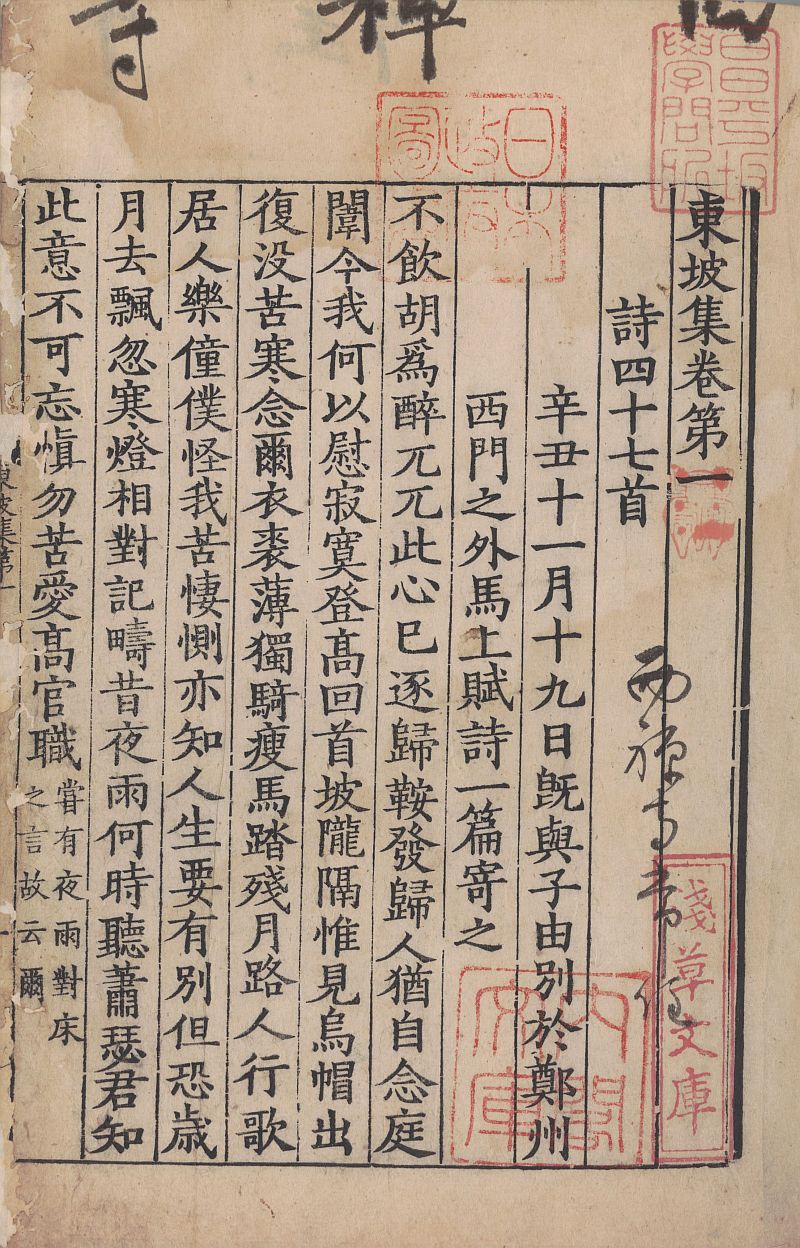 禪
寺
昌平坂
學問所
日本
政府
圖書
東坡集卷第一
詩四十七首
西禪寺
淺草文庫
內閣
文庫
辛丑十一月十九日旣與子由別於鄭州
西門之外馬上賦詩一篇寄之
不飲胡爲醉兀兀此心已逐歸鞍發歸人猶自念庭
闈今我何以慰寂寞登髙回首坡隴隔惟見烏帽出
復没苦寒念爾衣裘薄獨騎瘦馬踏殘月路人行歌
居人樂僮僕怪我苦悽惻亦知人生要有別但恐歲
月去飄忽寒燈相對記疇昔夜雨何時聽蕭瑟君知
此意不可忘愼勿苦愛髙官職甞有夜雨對床
之言故云爾
東坡集第一